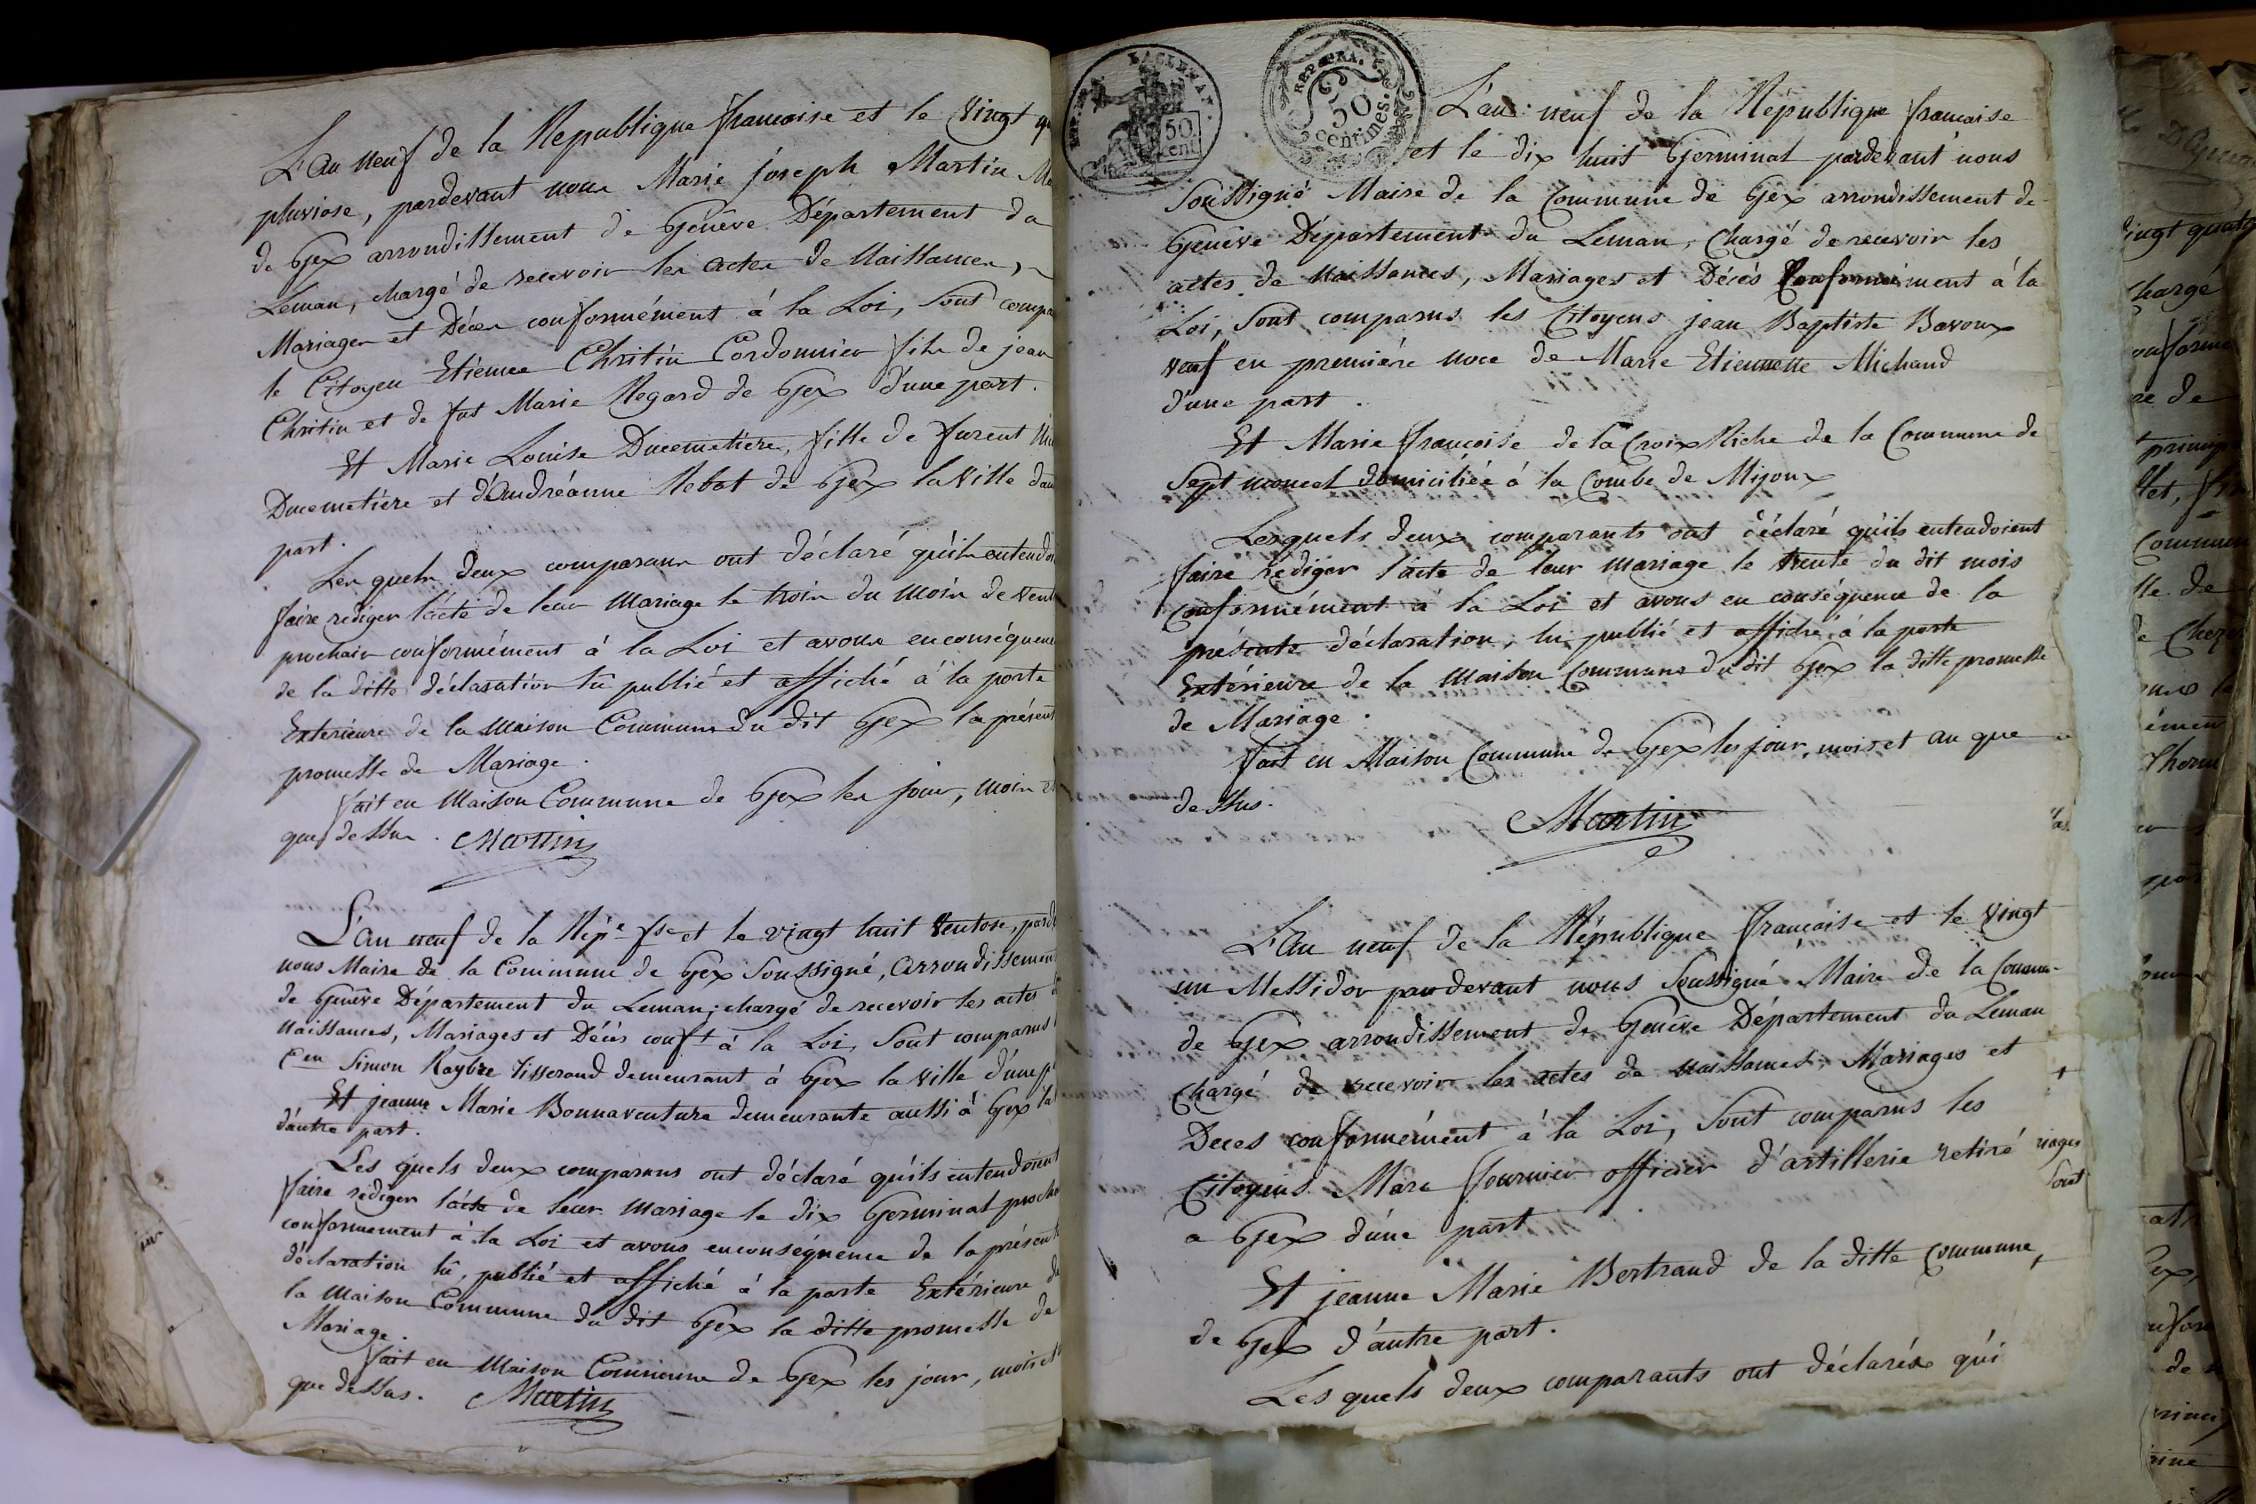 L'an neuf de la Republique francoise et le vingt
pluviose, pardevant nous Marie joseph Martin
de Gex arrondissement de Genêve Département du
Leman, chargé de recevoir les actes de Naissances,
Mariages et Décès conformément à la Loi, Sont
le Citoyen Etienne Christin Cordonnier fils de jean
Christin et de fut Marie Regard de Gex d'une part.
Et Marie Louise Ducemetiere, fille de furent
Ducemetière et d'Andréanne Rebat de Gex la ville
part.
Les quels deux comparans ont déclaré qu'ils
faire rediger l'acte de leur Mariage le trois du mois de
prochain conformément à la Loi et avons en conséquence
de la ditte déclaration lû publié et affiché à la porte
Exterieure de la Maison Commune du dit Gex la présente
promesse de Mariage.
fait en Maison Commune de Gex les jour, mois et
que dessus. Martin
L'an neuf de la Répe fse et le vingt huit Ventose,
nous Maire de la Commune de Gex Soussigné, Arrondissement
de Genêve Département du Leman, chargé de recevoir les actes
Naissances, Mariages et Décès conft à la Loi, Sont comparus
Cen Simon Raybre Tisserand demeurant à Gex la ville d'une
Et jeanne Marie Bonnaventure demeurante aussi à Gex
d'autre part.
Les quels deux comparans ont déclaré qu'ils entendoient
faire rediger l'acte de leur Mariage le dix Germinal
conformement à la Loi et avons en conséquence de la présente
déclaration lû, publié et affiché à la porte Extérieure de
la Maison Commune du dit Gex la ditte promesse de
Mariage.
fait en Maison Commune de Gex les jour, mois et
que dessus. Martin
REP. FRA.
LAC LEMAN.
50 cent.
REP. FRA.
50 centimes.
L'an neuf de la République francaise
et le dix huit Germinal pardevant nous
Soussigné Maire de la Commune de Gex arrondissement de
Genêve Département du Leman, Chargé de recevoir les
actes de Naissances, Mariages et Décès Conformément à la
Loi, Sont comparus les Citoyens jean Baptiste Bavoux
Veuf en première noce de Marie Etiennette Michaud
d'une part.
Et Marie francoise de la Croix Riche de la Commune de
Sept moncel domiciliée à la Combe de Mijoux
Lesquels deux comparants ont déclaré qu'ils entendoient
faire rediger l'acte de leur mariage le trente du dit mois
conformément à la Loi et avons en conséquence de la
présente déclaration, lu publié et affiché à la porte
Extérieure de la Maison Commune du dit Gex la ditte promesse
de Mariage.
fait en Maison Commune de Gex les jour, mois et an que
dessus.
Martin
L'an neuf de la République française et le vingt
un Messidor pardevant nous Soussigné Maire de la
de Gex arrondissement de Genêve Département du Leman
Chargé de recevoir les actes de Naissances Mariages et
Deces conformément à la Loi, Sont comparus les
Citoyens Marc fournier officier d'artillerie retiré
a Gex d'une part
Et jeanne Marie Bertrand de la ditte Commune,
de Gex d'autre part.
Les quels deux comparants ont déclarés qu'i